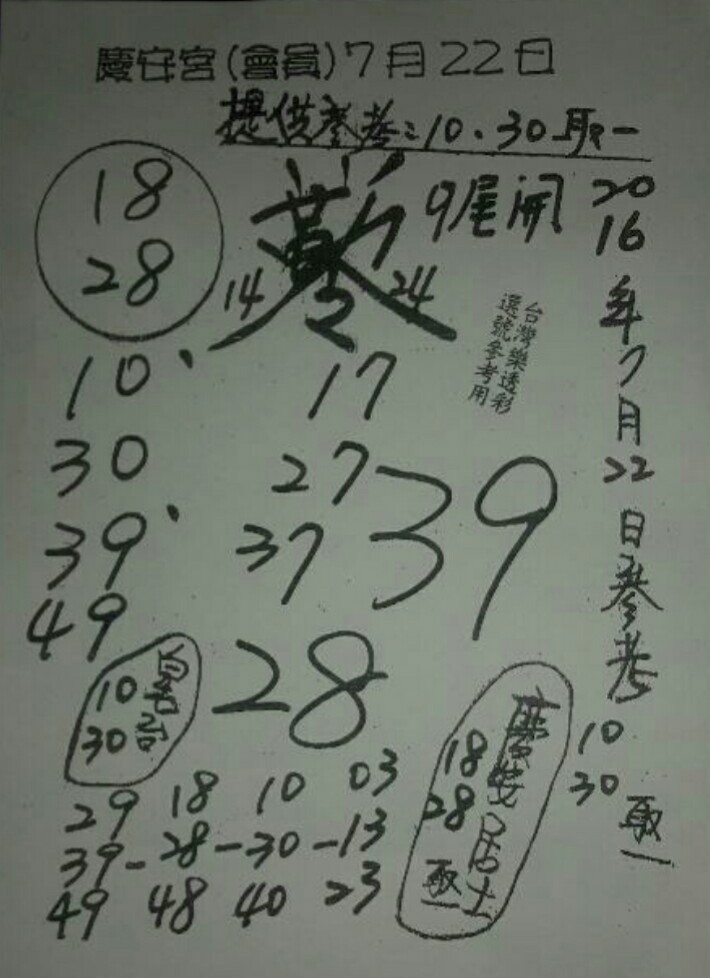 慶安宮(會員)7月22日
提供參考:10、30取一
18
28
9尾開
14
24
2016年7月22日參考
10
30
取一
台灣樂透彩
選號參考用
10、
30
39、
49
17
27
37
39
28
10
30
29 18 10 03
39-28-30-13
49 48 40 23
慶安居士
18
28
取一